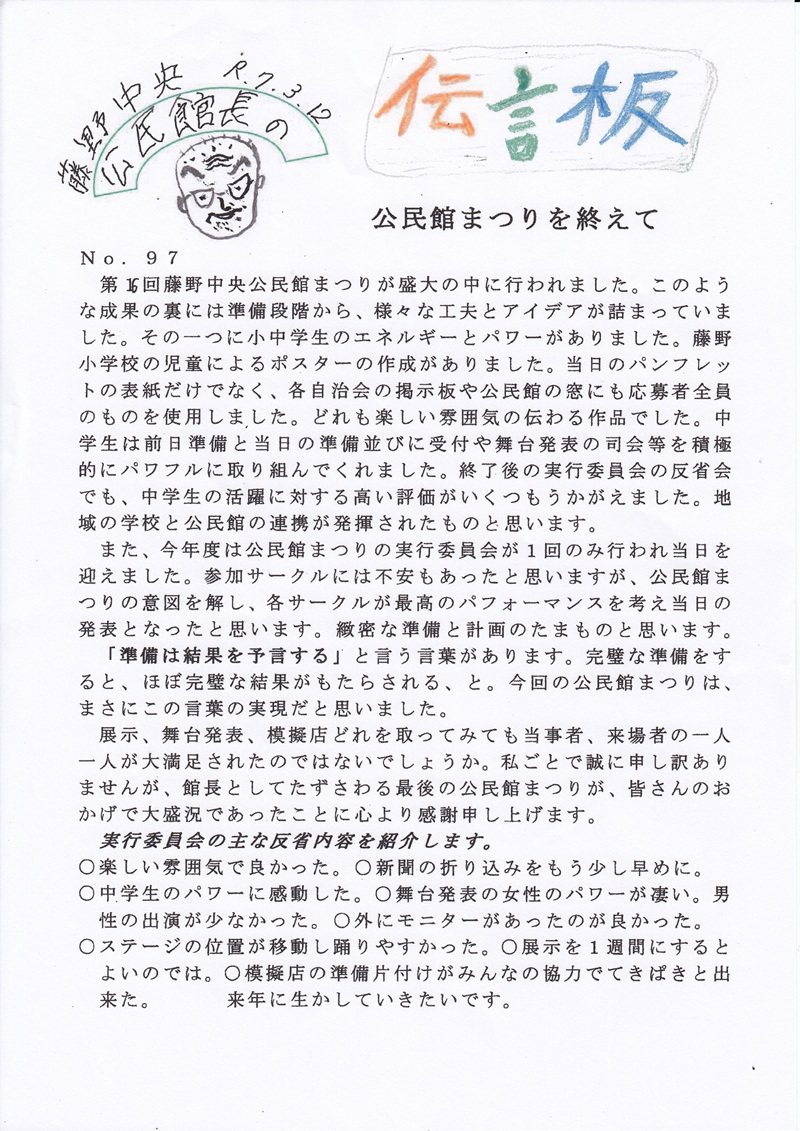 藤野中央
公民館長の
R.7.3.12
伝言板
公民館まつりを終えて
No. 97
第16回藤野中央公民館まつりが盛大の中に行われました。このよう
な成果の裏には準備段階から、様々な工夫とアイデアが詰まっていま
した。その一つに小中学生のエネルギーとパワーがありました。藤野
小学校の児童によるポスターの作成がありました。当日のパンフレッ
トの表紙だけでなく、各自治会の掲示板や公民館の窓にも応募者全員
のものを使用しました。どれも楽しい雰囲気の伝わる作品でした。中
学生は前日準備と当日の準備並びに受付や舞台発表の司会等を積極
的にパワフルに取り組んでくれました。終了後の実行委員会の反省会
でも、中学生の活躍に対する高い評価がいくつもうかがえました。地
域の学校と公民館の連携が発揮されたものと思います。
また、今年度は公民館まつりの実行委員会が1回のみ行われ当日を
迎えました。参加サークルには不安もあったと思いますが、公民館ま
つりの意図を解し、各サークルが最高のパフォーマンスを考え当日の
発表となったと思います。緻密な準備と計画のたまものと思います。
「準備は結果を予言する」と言う言葉があります。完璧な準備をす
ると、ほぼ完璧な結果がもたらされる、と。今回の公民館まつりは、
まさにこの言葉の実現だと思いました。
展示、舞台発表、模擬店どれを取ってみても当事者、来場者の一人
一人が大満足されたのではないでしょうか。私ごとで誠に申し訳あり
ませんが、館長としてたずさわる最後の公民館まつりが、皆さんのお
かげで大盛況であったことに心より感謝申し上げます。
実行委員会の主な反省内容を紹介します。
○楽しい雰囲気で良かった。○新聞の折り込みをもう少し早めに。
○中学生のパワーに感動した。○舞台発表の女性のパワーが凄い。男
性の出演が少なかった。○外にモニターがあったのが良かった。
○ステージの位置が移動し踊りやすかった。○展示を1週間にすると
よいのでは。○模擬店の準備片付けがみんなの協力でてきぱきと出
来た。 来年に生かしていきたいです。